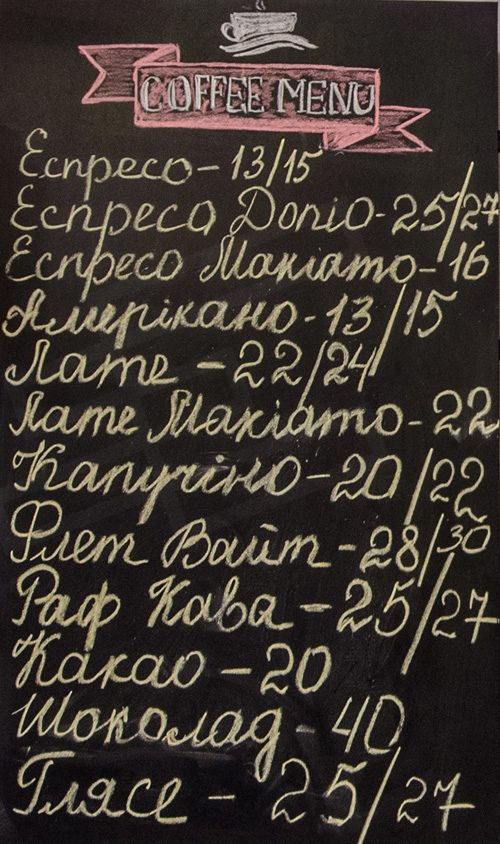 COFFEE MENU
Еспресо - 13/15
Еспресо Допіо - 25/27
Еспресо Макіато - 16
Амерікано - 13/15
Лате - 22/24
Лате Макіато - 22
Капучіно - 20/22
Флет Вайт - 28/30
Раф Кава - 25/27
Какао - 20
Шоколад - 40
Глясе - 25/27